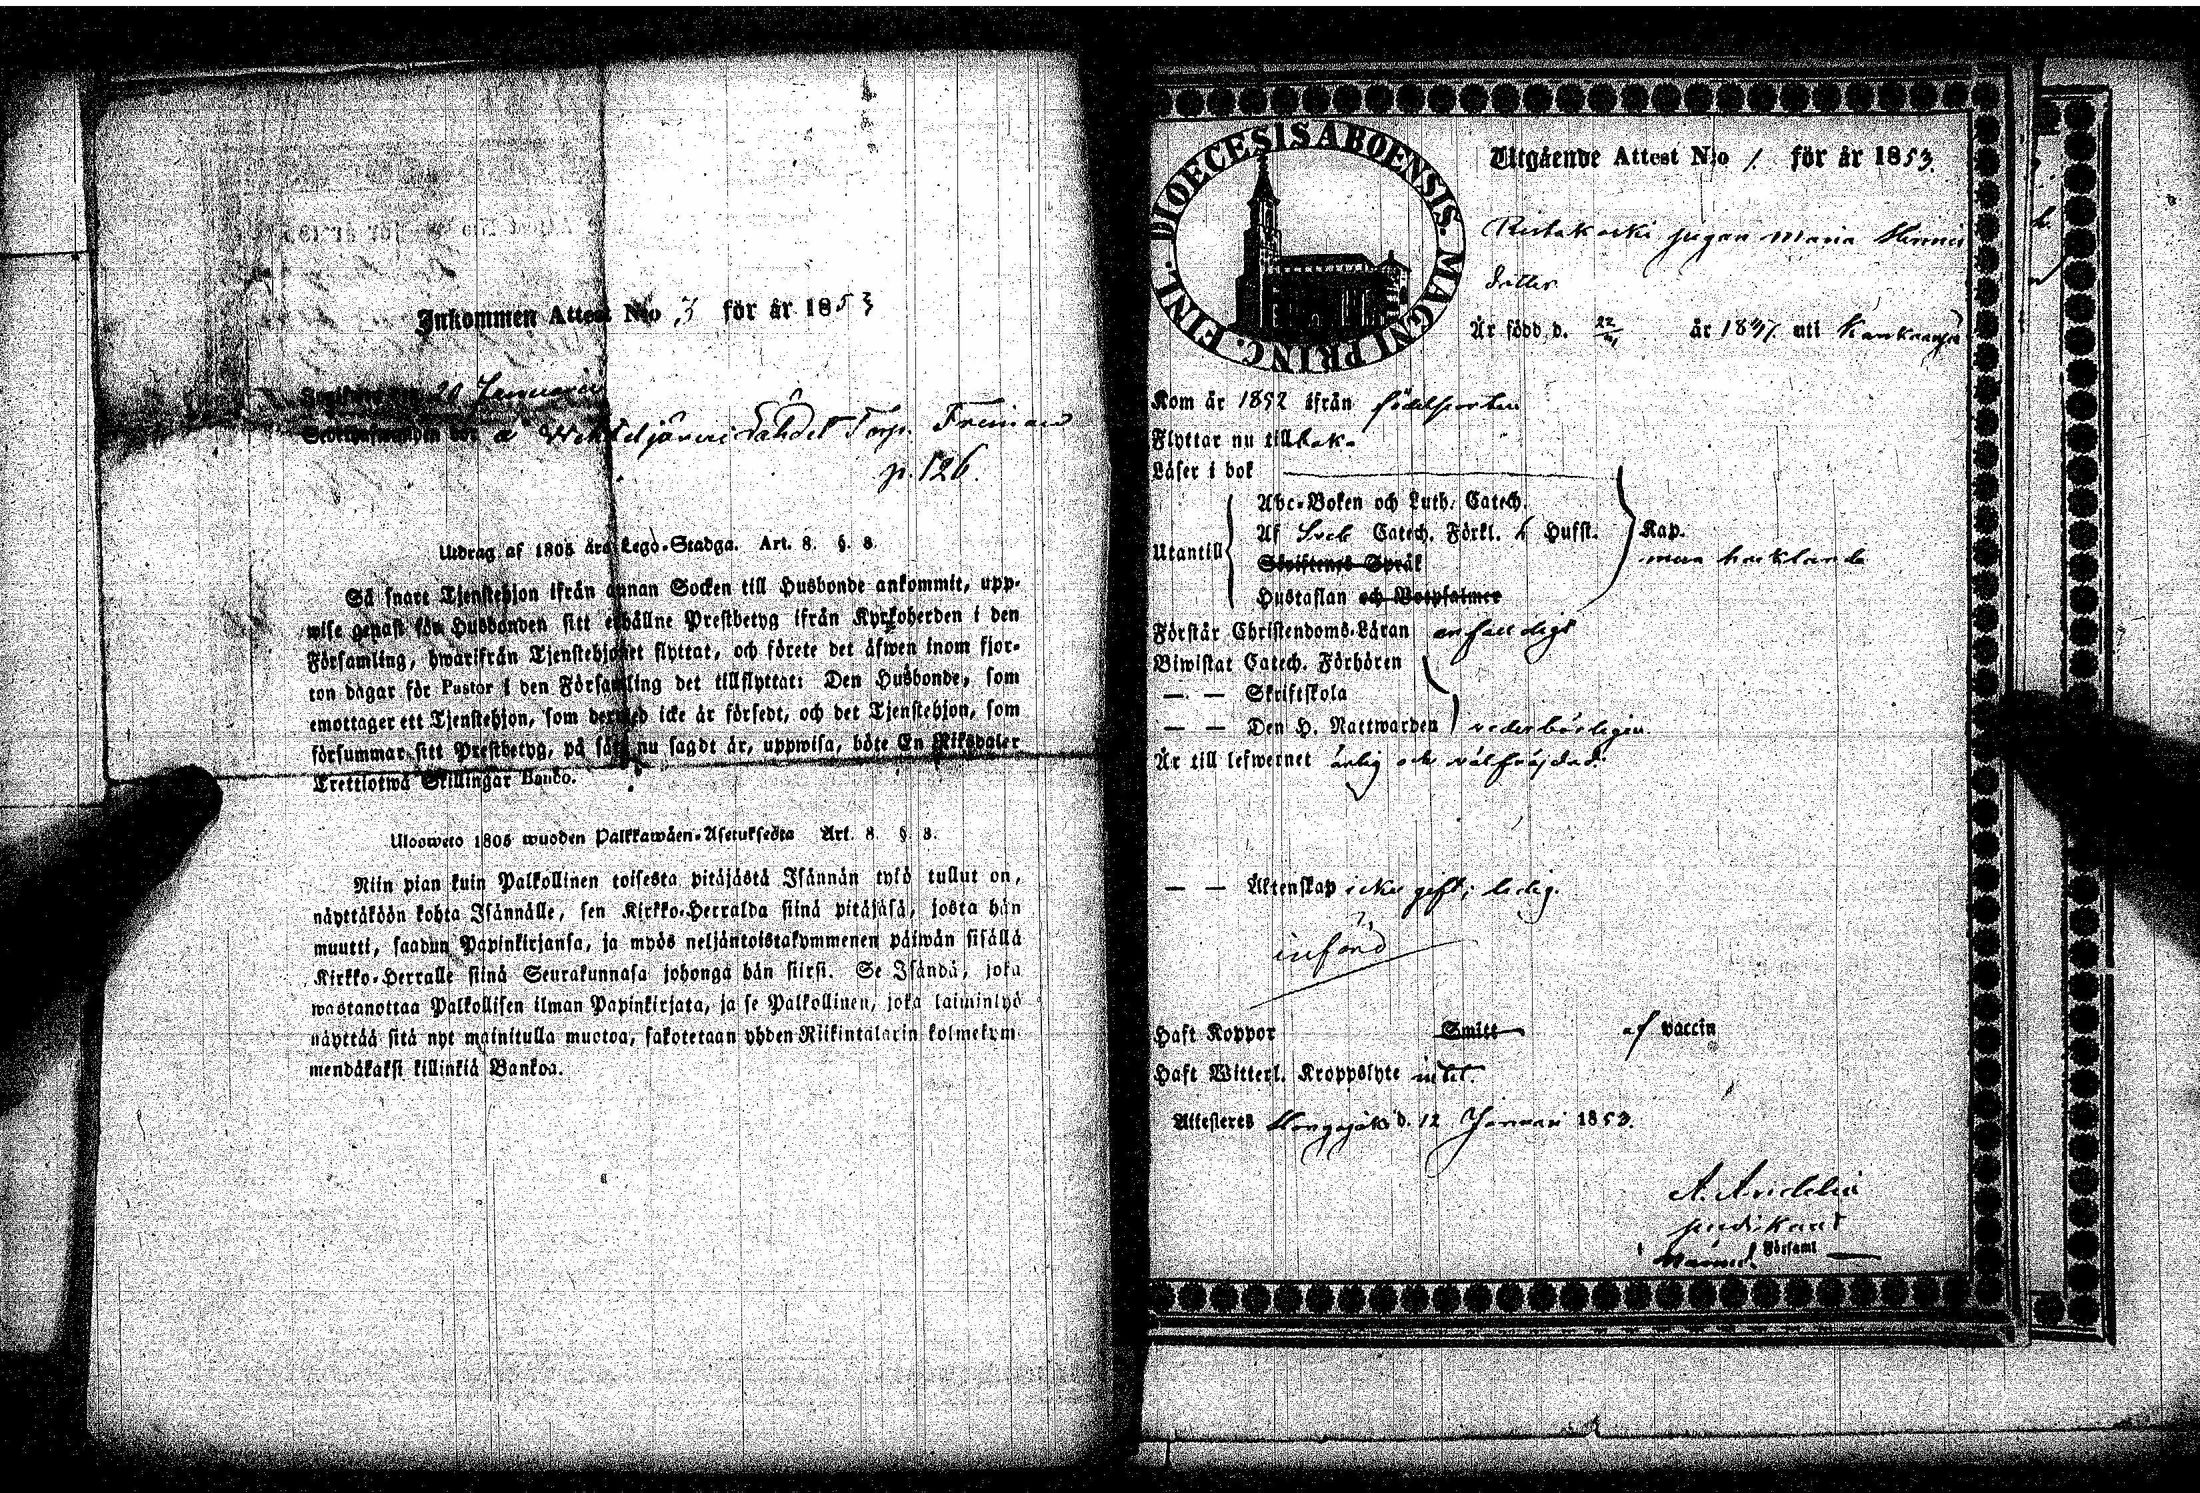 Inkommen Attest N:o 3 för år 1853
20 Januarii
Torp.
p. 126.
Utdrag af 1805 års Lego-Stadga. Art. 8. §. 8.
Så snart Tjenstehjon ifrån annan Socken till Husbonde ankommit, upp-
wise genast för Husbonden sitt erhållne Prestbetyg ifrån Kyrkoherden i den
Församling, hwarifrån Tjenstehjonet flyttat, och förete det äfwen inom fjor-
ton dagar för Pastor i den Församling det tillflyttat: Den Husbonde, som
emottager ett Tjenstehjon, som dermed icke är försedt, och det Tjenstehjon, som
försummar sitt Prestbetyg, på sätt nu sagdt är, uppwisa, böte En Riksdaler
Trettiotwå Skillingar Banco.
Ulosweto 1805 wuoden Palkkawäen-Asetuksesta Art. 8. §. 8.
Niin pian kuin Palkollinen toisesta pitäjästä Isännän tykö tullut on,
näyttäköön kohta Isännälle, sen Kirkko-Herralda siinä pitäjäsä, josta hän
muutti, saadun Papinkirjansa, ja myös neljäntoistakymmenen päiwän sisällä
Kirkko-Herralle siinä Seurakunnasa johonga hän siirsi. Se Isändä, joka
wastanottaa Palkollisen ilman Papinkirjata, ja se Palkollinen, joka laiminlyö
näyttää sitä nyt mainitulla muotoa, sakotetaan yhden Riikintalarin kolmekym-
mendäkaksi killinkiä Bankoa.
DIOECESIS ABOENSIS. MAGNI PRINC. FINL.
Utgående Attest N:o 1. för år 1853.
pigan Maria
dotter
Är född d. 22 år 1837 uti
Kom år 1852 ifrån
Flyttar nu tillbak.
Läser i bok
Abc-Boken och Luth. Catech.
Utantill Af Sveb Catech. Förkl. Husft. Kap.
Skriftenes Språk
Hustaflan och Botpsalmer
Förstår Christendoms-Läran enfaldigt
Biwistat Catech. Förhören
— — Skriftskola
— — Den H. Nattwarden vederbörligen.
Är till lefwernet ärlig och välfräjdad.
— — Äktenskap icke gift; ledig.
införd
Haft Koppor Smitt af vaccin
Haft Witterl. Kroppslyte intet.
Attesteres d. 12 Januari 1853.
predikant
i Församl